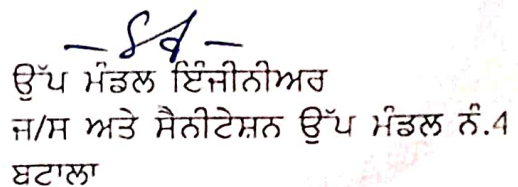 -sd-
ਉੱਪ ਮੰਡਲ ਇੰਜੀਨੀਅਰ
ਜ/ਸ ਅਤੇ ਸੈਨੀਟੇਸ਼ਨ ਉੱਪ ਮੰਡਲ ਨੰ.4
ਬਟਾਲਾ